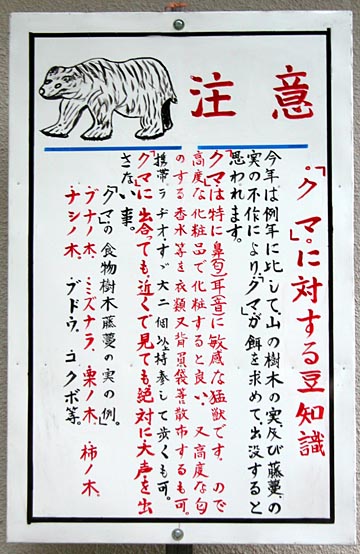 注意
「クマ」に対する豆知識
今年は例年に比して、山の樹木の実、及び藤蔓の
実の不作により、「クマ」が餌を求めて、出没すると
思われます。
「クマ」は特に鼻(匂)耳(音)に敏感な猛獣です。ので
高度な化粧品で化粧すると良い、又高度な匂
のする香水等を衣類又背負袋等散布するも可。
携帯ラヂオ、すゞ大二個以上持参して歩くも可。
「クマ」に出合っても近くで見ても絶対に大声を出
さない事。
「クマ」の食物樹木藤蔓の実の例。
ブナノ木、ミズナラ、栗ノ木、柿ノ木、
ナシノ木、ブドウ、コクボ等。